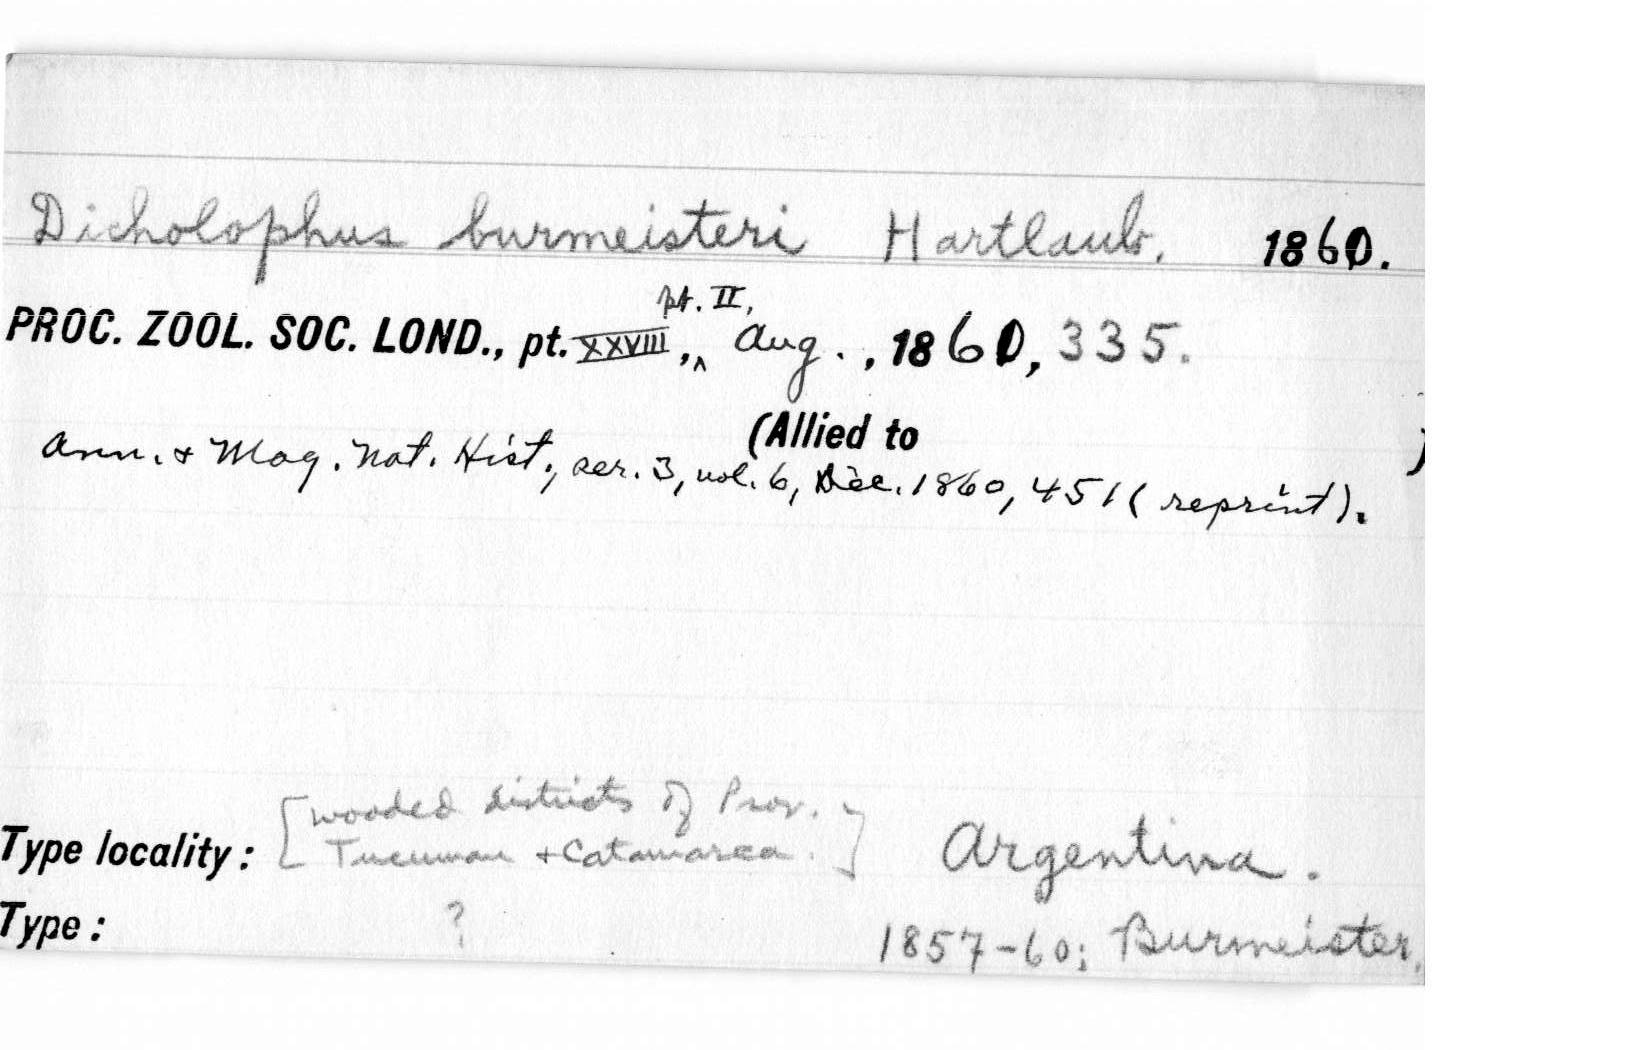 Dicholophus burmeisteri Hartlaub. 1860.
pt. II,
PROC. ZOOL. SOC. LOND., pt. XXVIII, ^ Aug. , 1860, 335.
(Allied to )
Ann. & Mag. Nat. Hist., ser. 3, vol. 6, Dec. 1860, 451 (reprint).
[wooded districts of Prov.
Type locality: Tucuman & Catamarca.] Argentina.
Type: ? 1857-60; Burmeister.